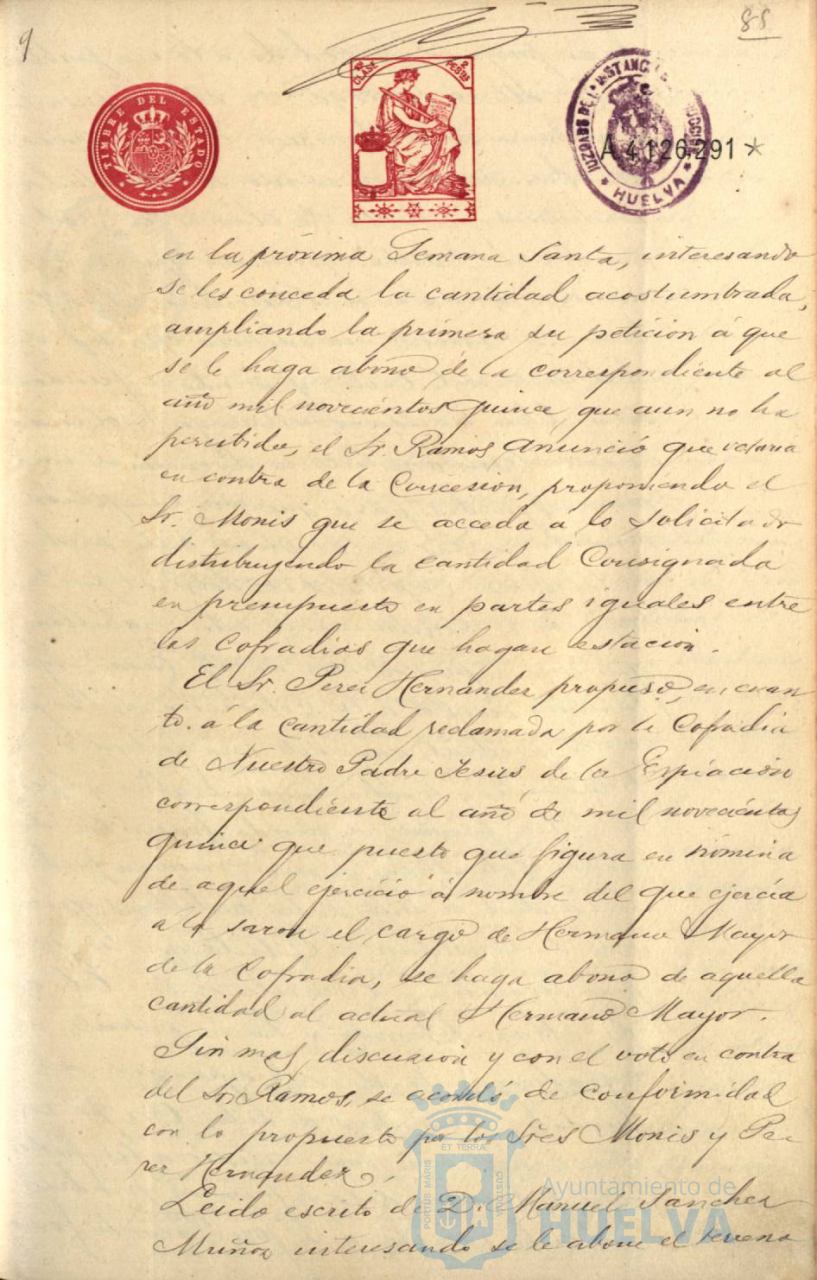 9
88
TIMBRE DEL ESTADO
CLASE
2 PTAS
JUZGADO DE 1ª INSTANCIA
HUELVA
A 4126291 *
en la próxima Semana Santa, interesando
se les conceda la cantidad acostumbrada,
ampliando la primera su petición á que
se le haga abono de la correspondiente al
año mil novecientos quince, que aun no ha
percibido, el Sr. Ramos anunció que votaria
en contra de la Concesión, proponiendo el
Sr. Monis que se acceda á lo solicitado
distribuyendo la cantidad Consignada
en presupuesto en partes iguales entre
las Cofradias que hagan estacion.
El Sr. Perez Hernandez propuso, en cuan
to á la cantidad reclamada por la Cofradia
de Nuestro Padre Jesús de la Expiación
correspondiente al año de mil novecientos
quince que puesto que figura en nómina
de aquel ejercicio á nombre del que ejercía
á la sazon el cargo de Hermano Mayor
de la Cofradia, se haga abono de aquella
cantidad al actual Hermano Mayor.
Sin mas discusión y con el voto en contra
del Sr. Ramos, se acordó de conformidad
con lo propuesto por los Sres Monis y Pe
rez Hernandez.
Leido escrito de D. Manuel Sanchez
Muñoz interesando se le abone el terreno
PORTUS MARIS
ET TERRÆ
CUSTODIA
Ayuntamiento de
HUELVA